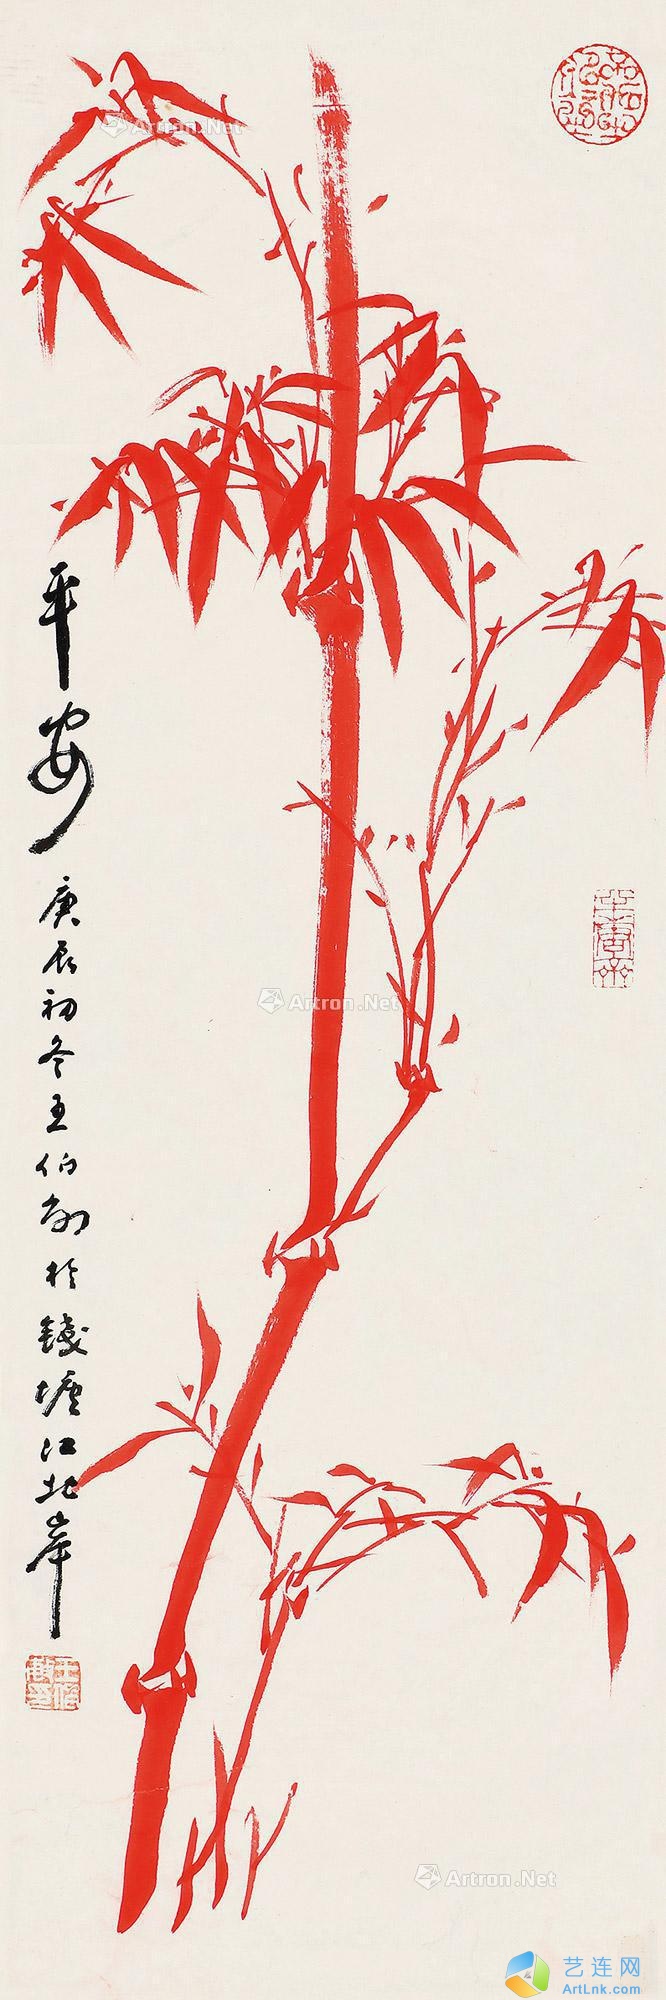 平安
庚辰初冬王伯敏於錢塘江北岸
王伯敏印
Artron.Net
Artron.Net
Artron.Net
Artron.Net
艺连网
ArtLnk.com